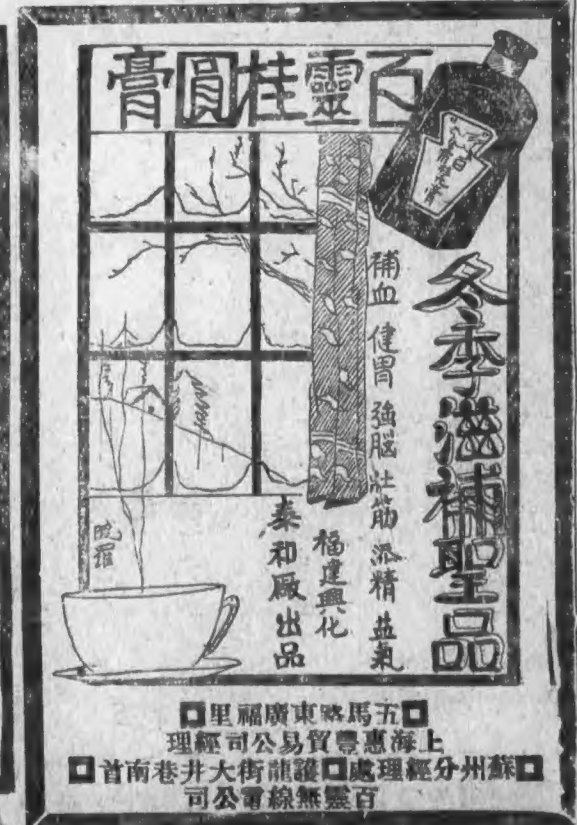 百靈桂圓膏
冬季滋補聖品
補血 健胃 強腦 壯筋 添精 益氣
福建興化
泰和廠出品
曉羅
五馬路東廣福里
上海惠豐貿易公司經理
蘇州分經理處 護龍街大井巷南首
百靈無線電公司